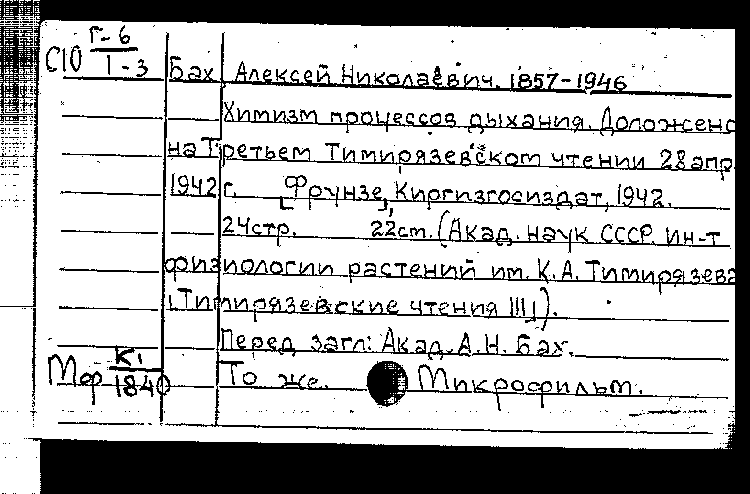 С10 Г-6
1-3
Бах, Алексей Николаевич. 1857-1946
Химизм процессов дыхания. Доложено
на Третьем Тимирязевском чтении 28 апр.
1942 г. Фрунзе, Киргизгосиздат, 1942.
24стр. 22см. (Акад. наук СССР. Ин-т
физиологии растений им. К.А. Тимирязева
[Тимирязевские чтения III]).
Перед загл: Акад. А.Н. Бах.
Мф К1
1840
То же. Микрофильм.